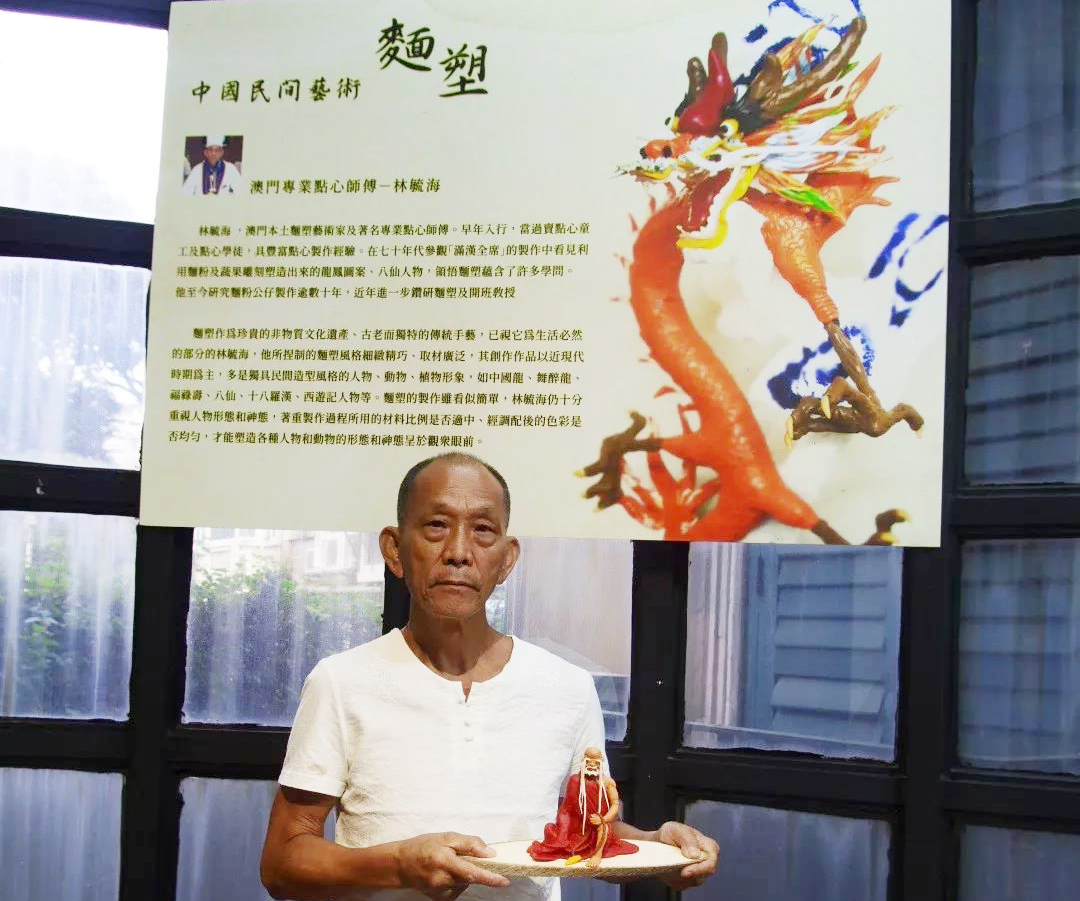 麵塑
中國民間藝術
澳門專業點心師傅－林毓海
林毓海，澳門本土麵塑藝術家及著名專業點心師傅。早年入行，當過賣點心童
工及點心學徒，具豐富點心製作經驗。在七十年代參觀「滿漢全席」的製作中看見利
用麵粉及蔬果雕刻塑造出來的龍鳳圖案、八仙人物，領悟麵塑蘊含了許多學問。
他至今研究麵粉公仔製作逾數十年，近年進一步鑽研麵塑及開班教授
麵塑作爲珍貴的非物質文化遺產、古老而獨特的傳統手藝，已視它爲生活必然
的部分的林毓海，他所捏制的麵塑風格細緻精巧、取材廣泛，其創作作品以近現代
時期爲主，多是獨具民間造型風格的人物、動物、植物形象，如中國龍、舞醉龍、
福祿壽、八仙、十八羅漢、西遊記人物等。麵塑的製作雖看似簡單，林毓海仍十分
重視人物形態和神態，著重製作過程所用的材料比例是否適中、經調配後的色彩是
否均勻，才能塑造各種人物和動物的形態和神態呈於觀衆眼前。